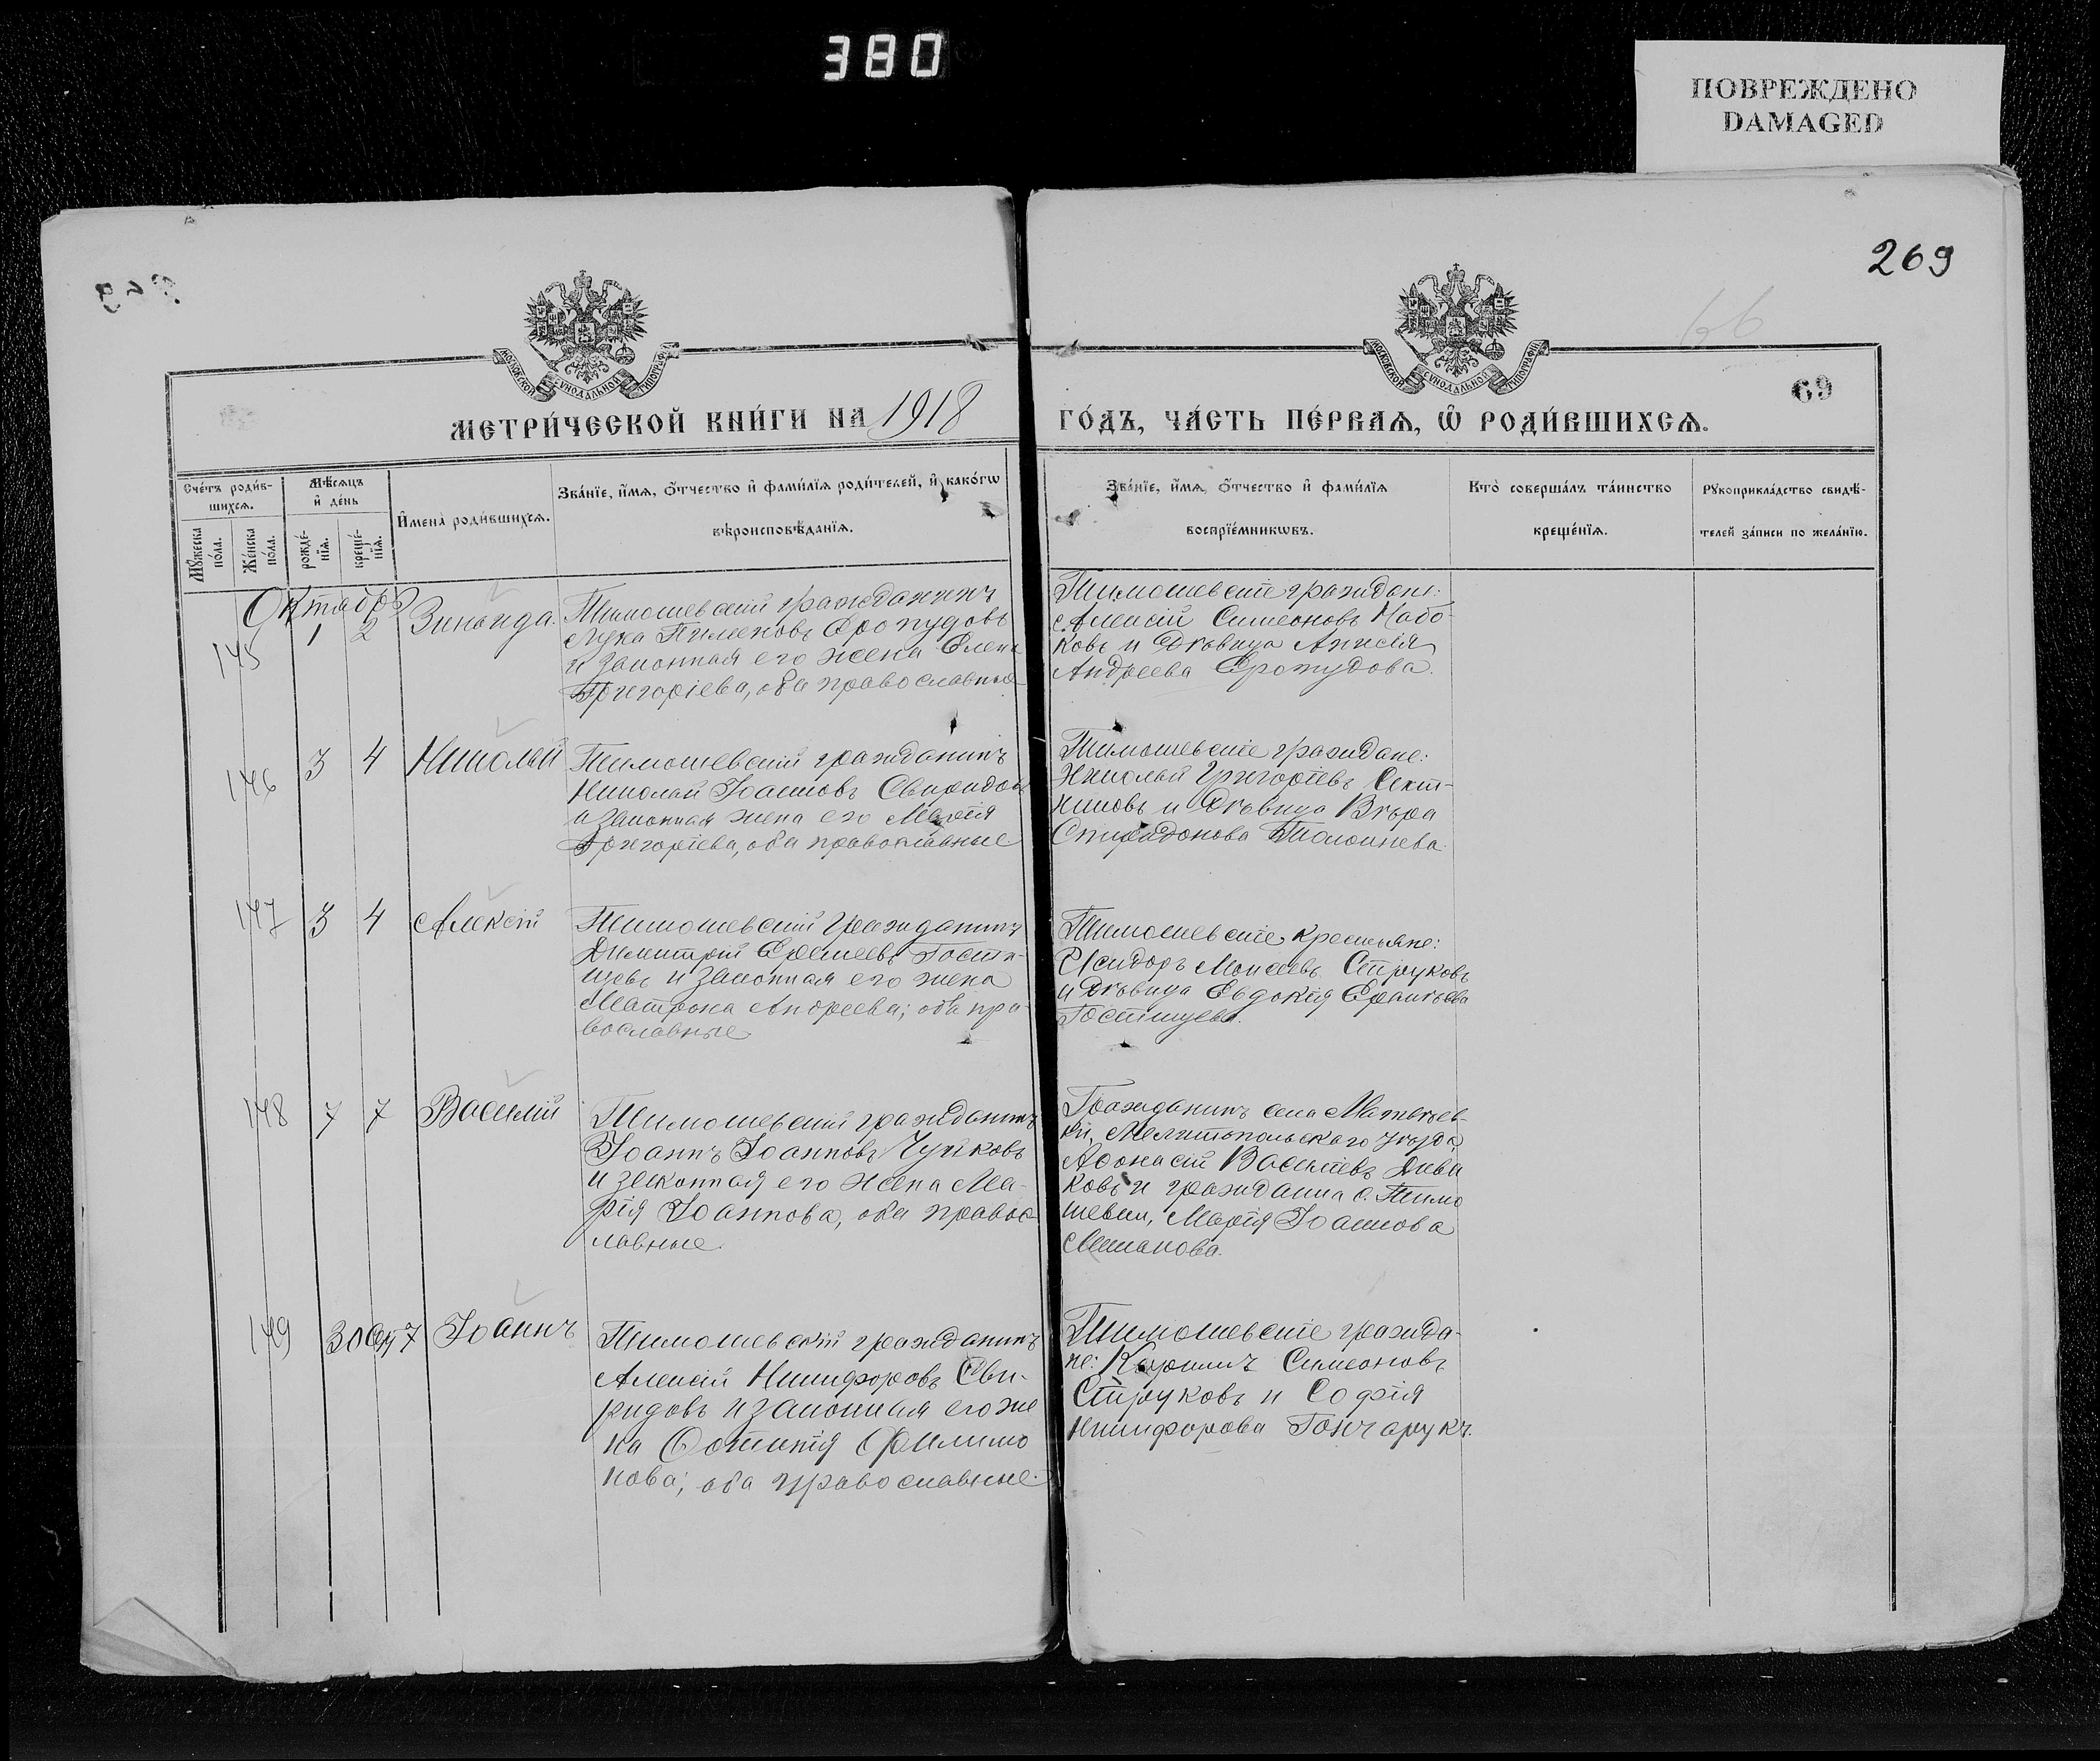 380
ПОВРЕЖДЕНО
DAMAGED
269
69
МОСКОВСКОЙ СѴНОДАЛЬНОЙ ТИПОГРАФІИ
МОСКОВСКОЙ СѴНОДАЛЬНОЙ ТИПОГРАФІИ
МЕТРИ́ЧЕСКОЙ КНИ́ГИ НА 1918
ГО́ДЪ, ЧА́СТЬ ПЕ́РВАѦ, Ѡ҆ РОДИ́ВШИХСѦ.
Сче́тъ роди́в-
шихсѧ.
Мꙋ́жеска
по́ла.
Же́нска
по́ла.
Мѣ́сѧцъ
и҆ де́нь
рожде́-
нїѧ.
креще́-
нїѧ.
И҆мена̀ роди́вшихсѧ.
Зва́нїе, и҆́мѧ, ѻ҆́тчество и҆ фами́лїѧ роди́телей, и҆ како́гѡ
вѣроисповѣ́данїѧ.
Зва́нїе, и҆́мѧ, ѻ҆́тчество и҆ фами́лїѧ
воспрїе́мникѡвъ.
Кто̀ соверша́лъ та́инство
креще́нїѧ.
Рꙋкоприкла́дство свидѣ́-
телей за́писи по жела́нїю.
Октябрь
145 1 2 Зинаида.
Тимошевскій гражданинъ
Лука Пименовъ Ѳропудовъ
и законная его жена Елена
Григоріева, оба православные
Тимошевскіе граждане:
Алексій Симеоновъ Набо-
ковъ и дѣвица Анисія
Андреева
146 3 4 Николай
Тимошевскій гражданинъ
Николай Іоанновъ Свиридовъ
и законная жена его Марія
Григоріева, оба православные
Тимошевскіе граждане:
Николай Григоріевъ
и дѣвица Вѣра
Спиридонова
147 3 4 Алексій
Тимошевскій гражданинъ
Димитрій Гости-
щевъ и законная его жена
Матрона Андреева; оба пра-
вославные
Тимошевскіе крестьяне:
Исидоръ Моисеевъ Струковъ
и дѣвица Евдокія
Гостищева.
148 7 7 Василій
Тимошевскій гражданинъ
Іоаннъ Іоанновъ Чуйковъ
и законная его жена Ма-
рія Іоаннова, оба правос-
лавные.
Гражданинъ села
Мелитопольскаго уѣзда,
Аѳонасій Василіевъ
и гражданка с. Тимо
шевки, Марія Іоаннова
149 30 Сен 7 Іоаннъ
Тимошевскій гражданинъ
Алексій Никифоровъ Сви-
ридовъ и законная его же
на Фотинія Филимо
нова; оба православные.
Тимошевскіе гражда-
не: Кириллъ Симеоновъ
Струковъ и Софія
Никифорова Гончарукъ.